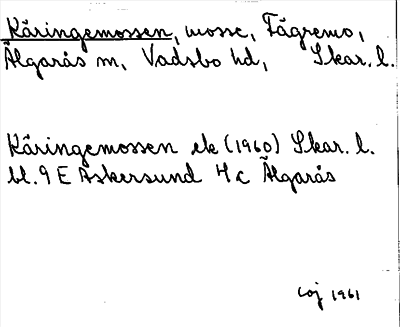 Käringemossen, mosse, Fägremo,
Älgarås sn, Vadsbo hd, Skar. l.
Käringemossen ek (1960) Skar. l.
bl. 9 E Askersund 4 c Älgarås
1961